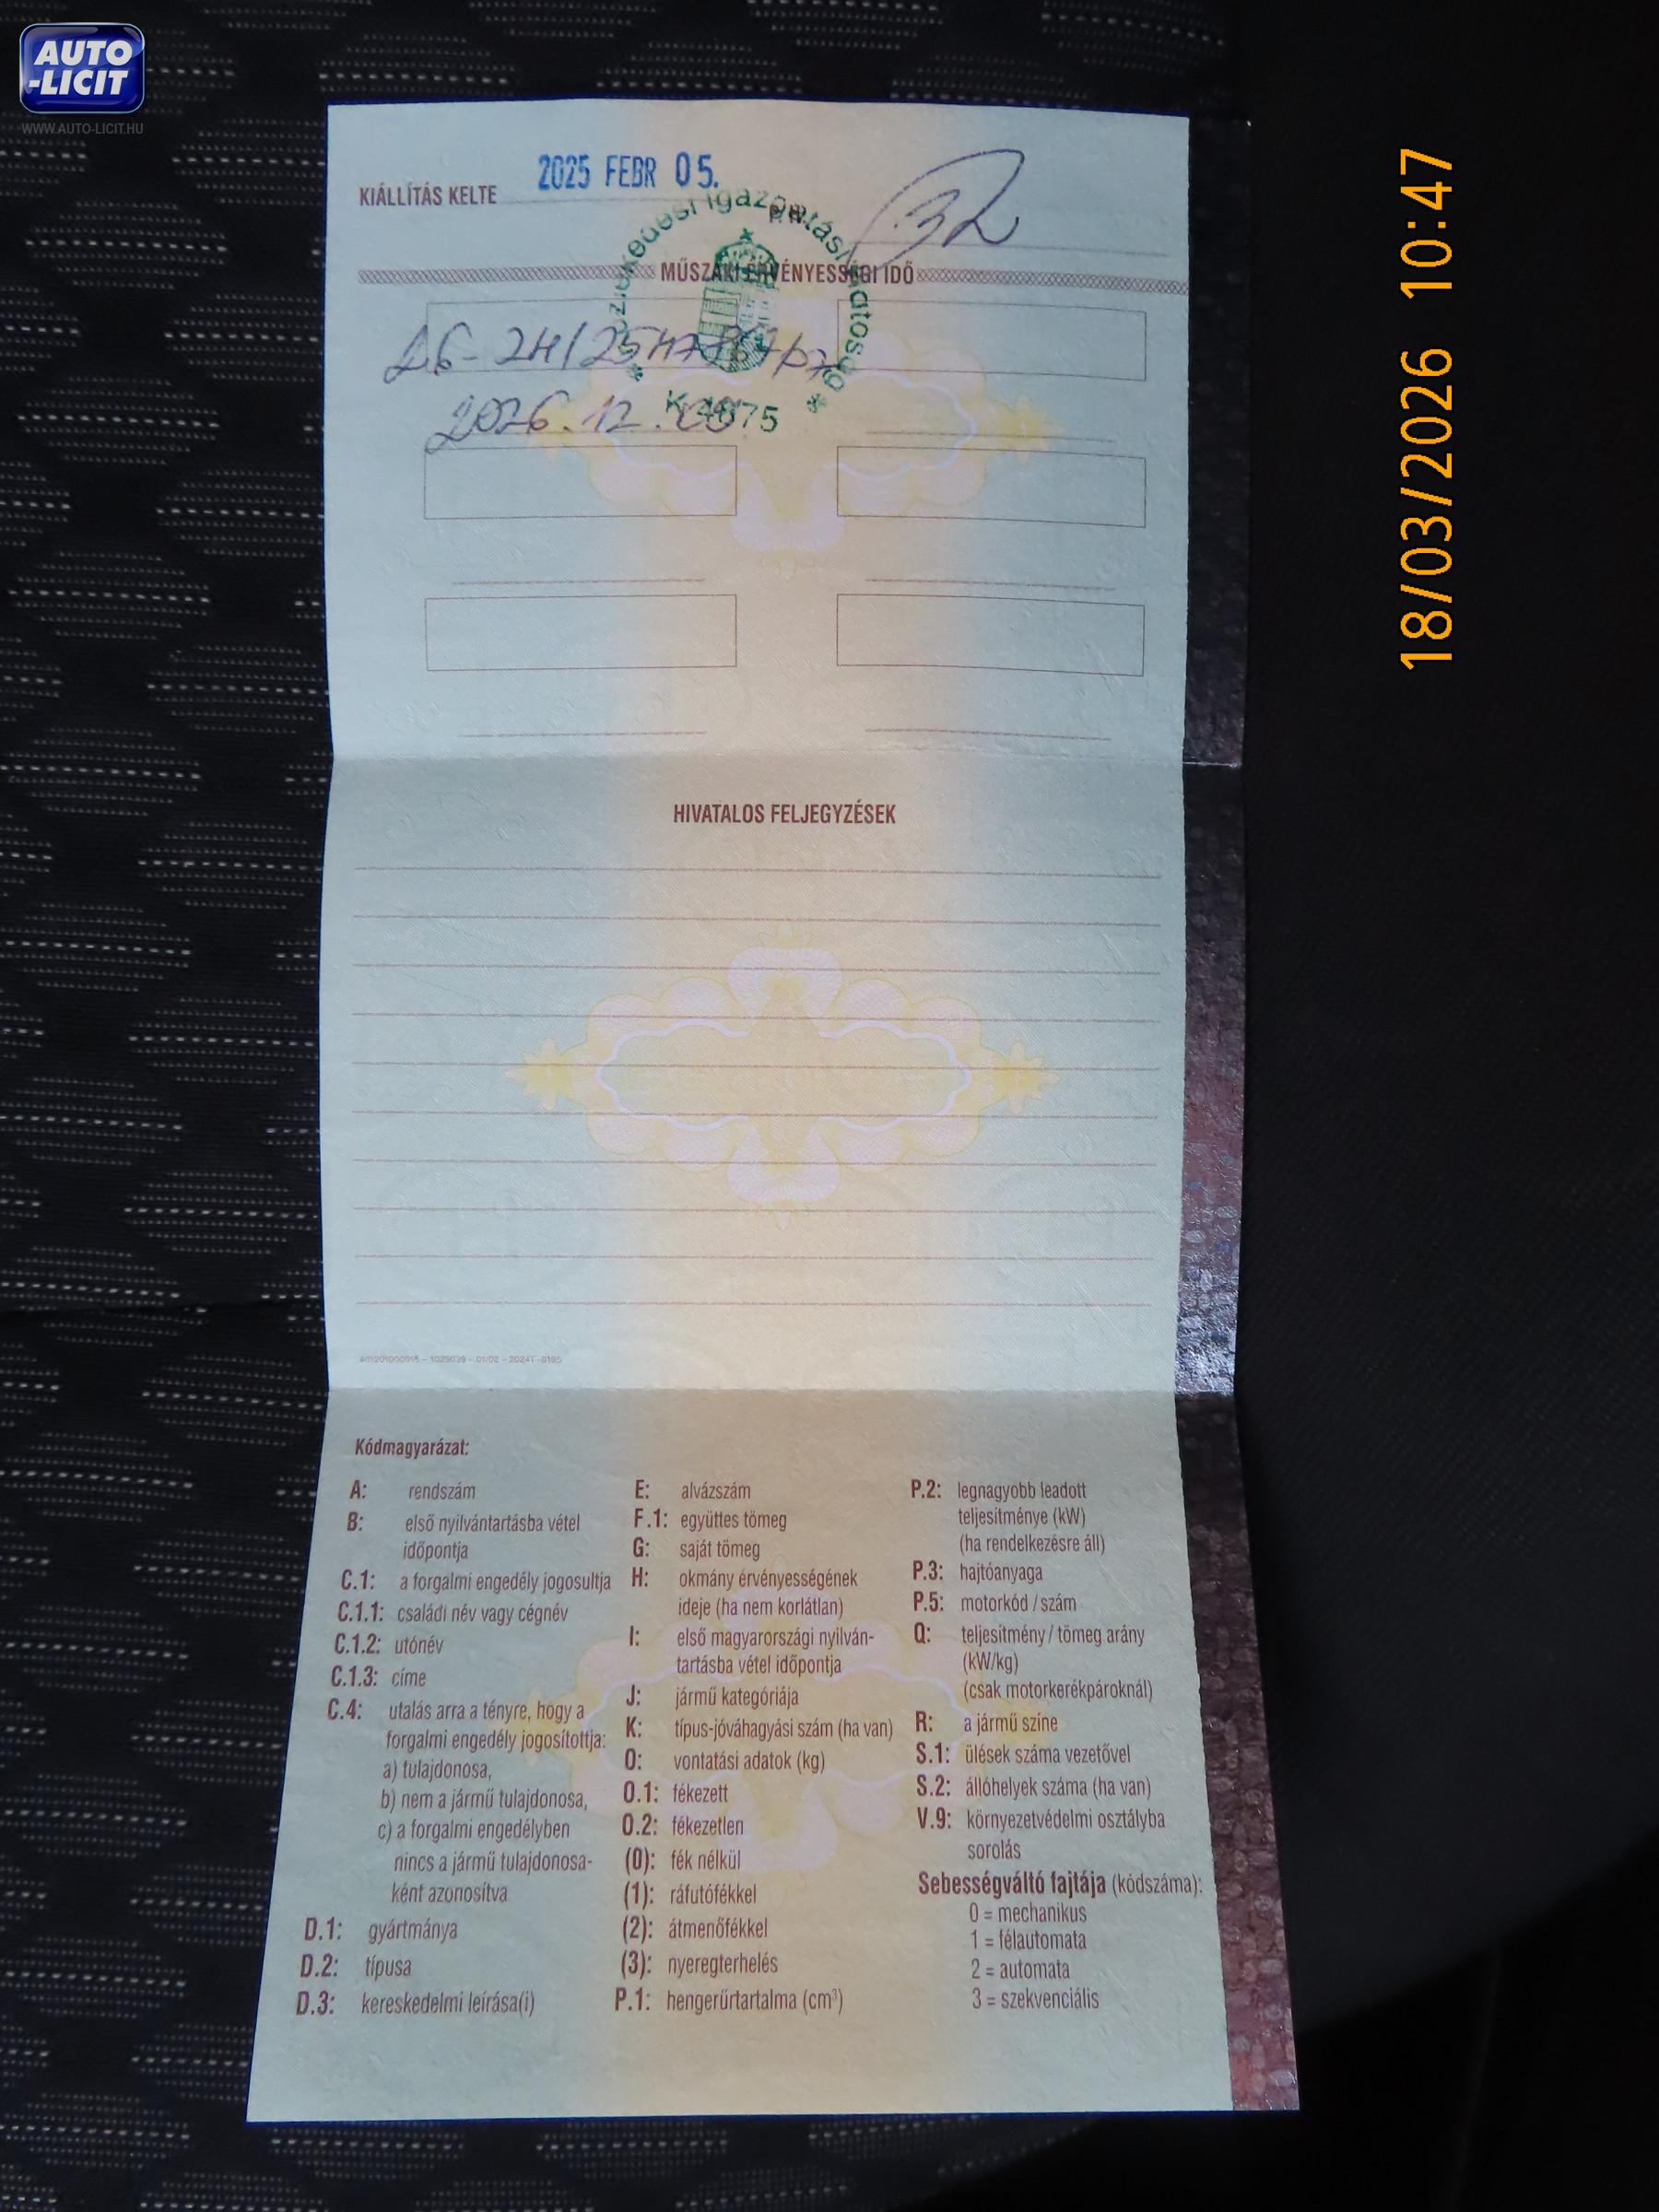 AUTO
-LICIT
WWW.AUTO-LICIT.HU
18/03/2026 10:47
KIÁLLÍTÁS KELTE 2025 FEBR 05.
P.H.
32
MŰSZAKI ÉRVÉNYESSÉGI IDŐ
K 4675
2026.12.
HIVATALOS FELJEGYZÉSEK
Kódmagyarázat:
A: rendszám
B: első nyilvántartásba vétel
időpontja
C.1: a forgalmi engedély jogosultja
C.1.1: családi név vagy cégnév
C.1.2: utónév
C.1.3: címe
C.4: utalás arra a tényre, hogy a
forgalmi engedély jogosítottja:
a) tulajdonosa,
b) nem a jármű tulajdonosa,
c) a forgalmi engedélyben
nincs a jármű tulajdonosa-
ként azonosítva
D.1: gyártmánya
D.2: típusa
D.3: kereskedelmi leírása(i)
E: alvázszám
F.1: együttes tömeg
G: saját tömeg
H: okmány érvényességének
ideje (ha nem korlátlan)
I: első magyarországi nyilván-
tartásba vétel időpontja
J: jármű kategóriája
K: típus-jóváhagyási szám (ha van)
O: vontatási adatok (kg)
O.1: fékezett
O.2: fékezetlen
(0): fék nélkül
(1): ráfutófékkel
(2): átmenőfékkel
(3): nyeregterhelés
P.1: hengerűrtartalma (cm³)
P.2: legnagyobb leadott
teljesítménye (kW)
(ha rendelkezésre áll)
P.3: hajtóanyaga
P.5: motorkód / szám
Q: teljesítmény / tömeg arány
(kW/kg)
(csak motorkerékpároknál)
R: a jármű színe
S.1: ülések száma vezetővel
S.2: állóhelyek száma (ha van)
V.9: környezetvédelmi osztályba
sorolás
Sebességváltó fajtája (kódszáma):
0 = mechanikus
1 = félautomata
2 = automata
3 = szekvenciális